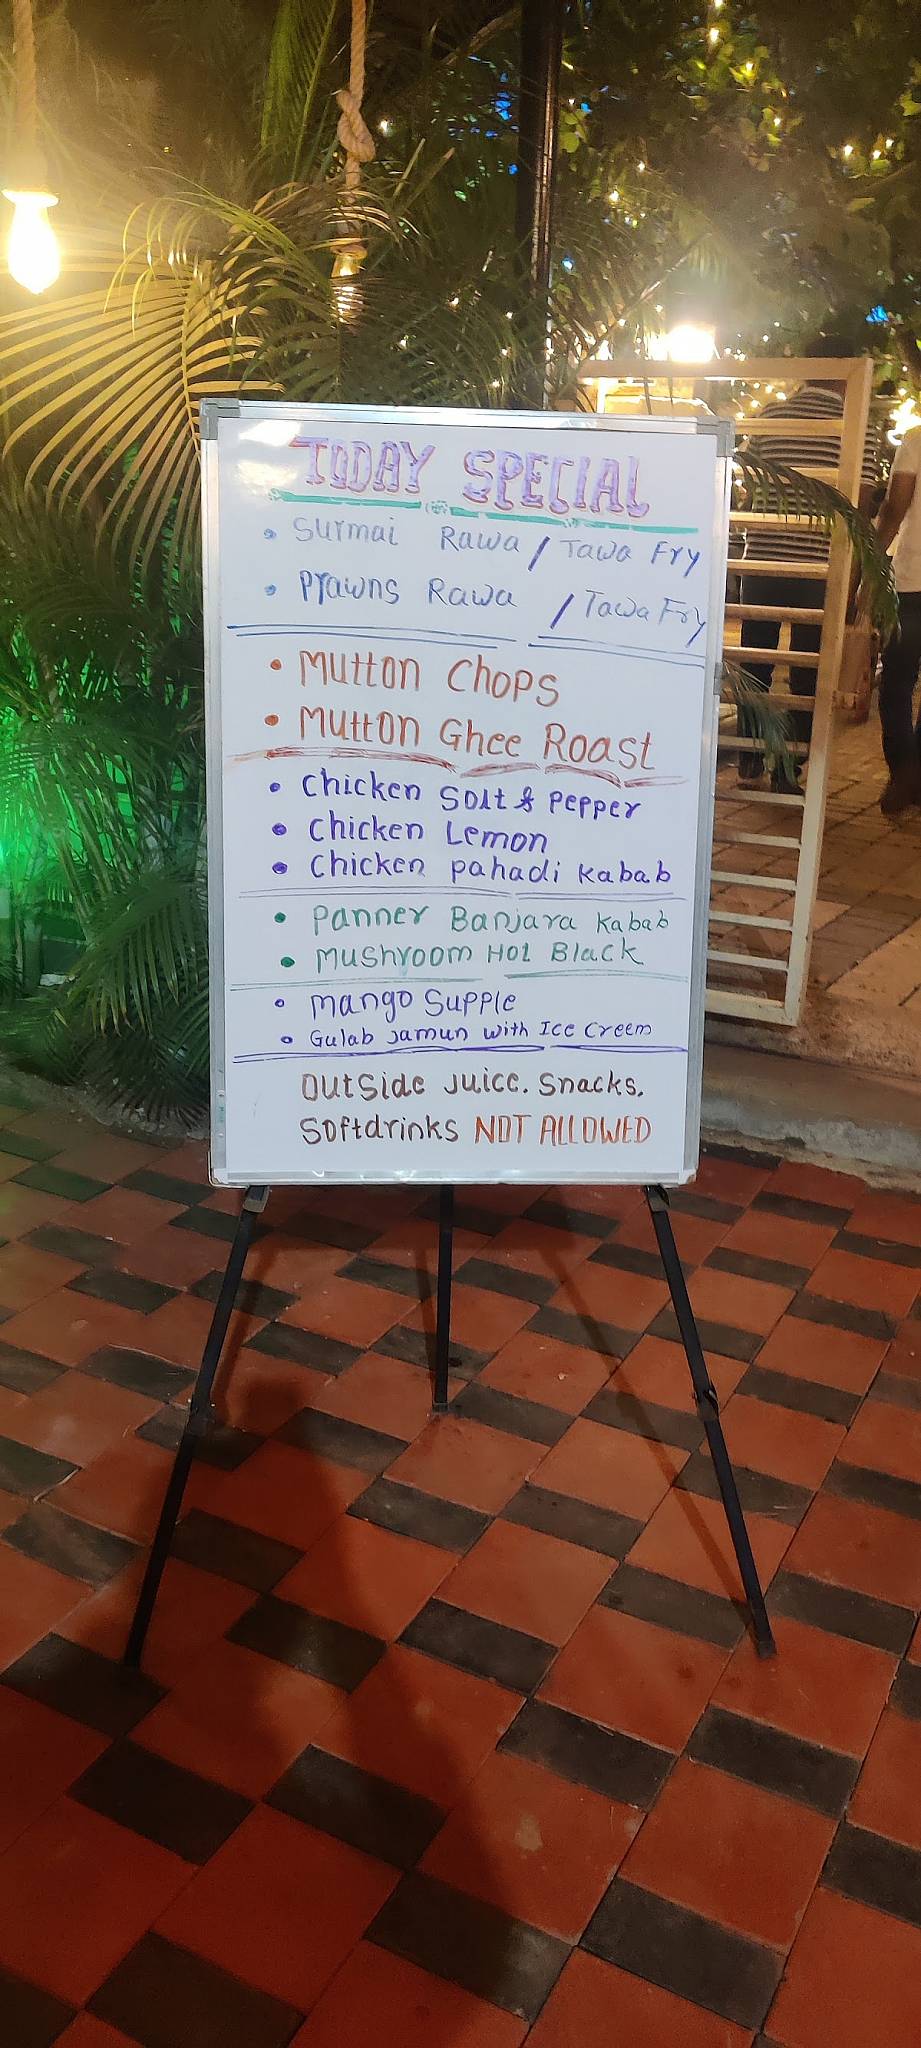 TODAY SPECIAL
• Surmai Rawa / Tawa Fry
• Prawns Rawa / Tawa Fry
• Mutton Chops
• Mutton Ghee Roast
• Chicken Solt & Pepper
• Chicken Lemon
• Chicken pahadi Kabab
• Panner Banjara Kabab
• Mushroom Hot Black
• Mango Supple
• Gulab Jamun with Ice Creem
Outside Juice. Snacks.
Softdrinks NOT ALLOWED